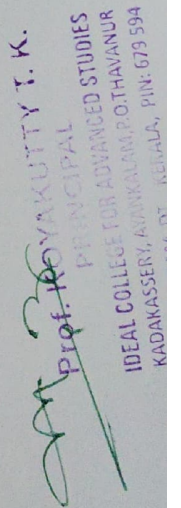 Prof. KOYAKUTTY T. K.
PRINCIPAL
IDEAL COLLEGE FOR ADVANCED STUDIES
KADAKASSERY, AYANKALAM, P.O. THAVANUR
KERALA, PIN: 679 594